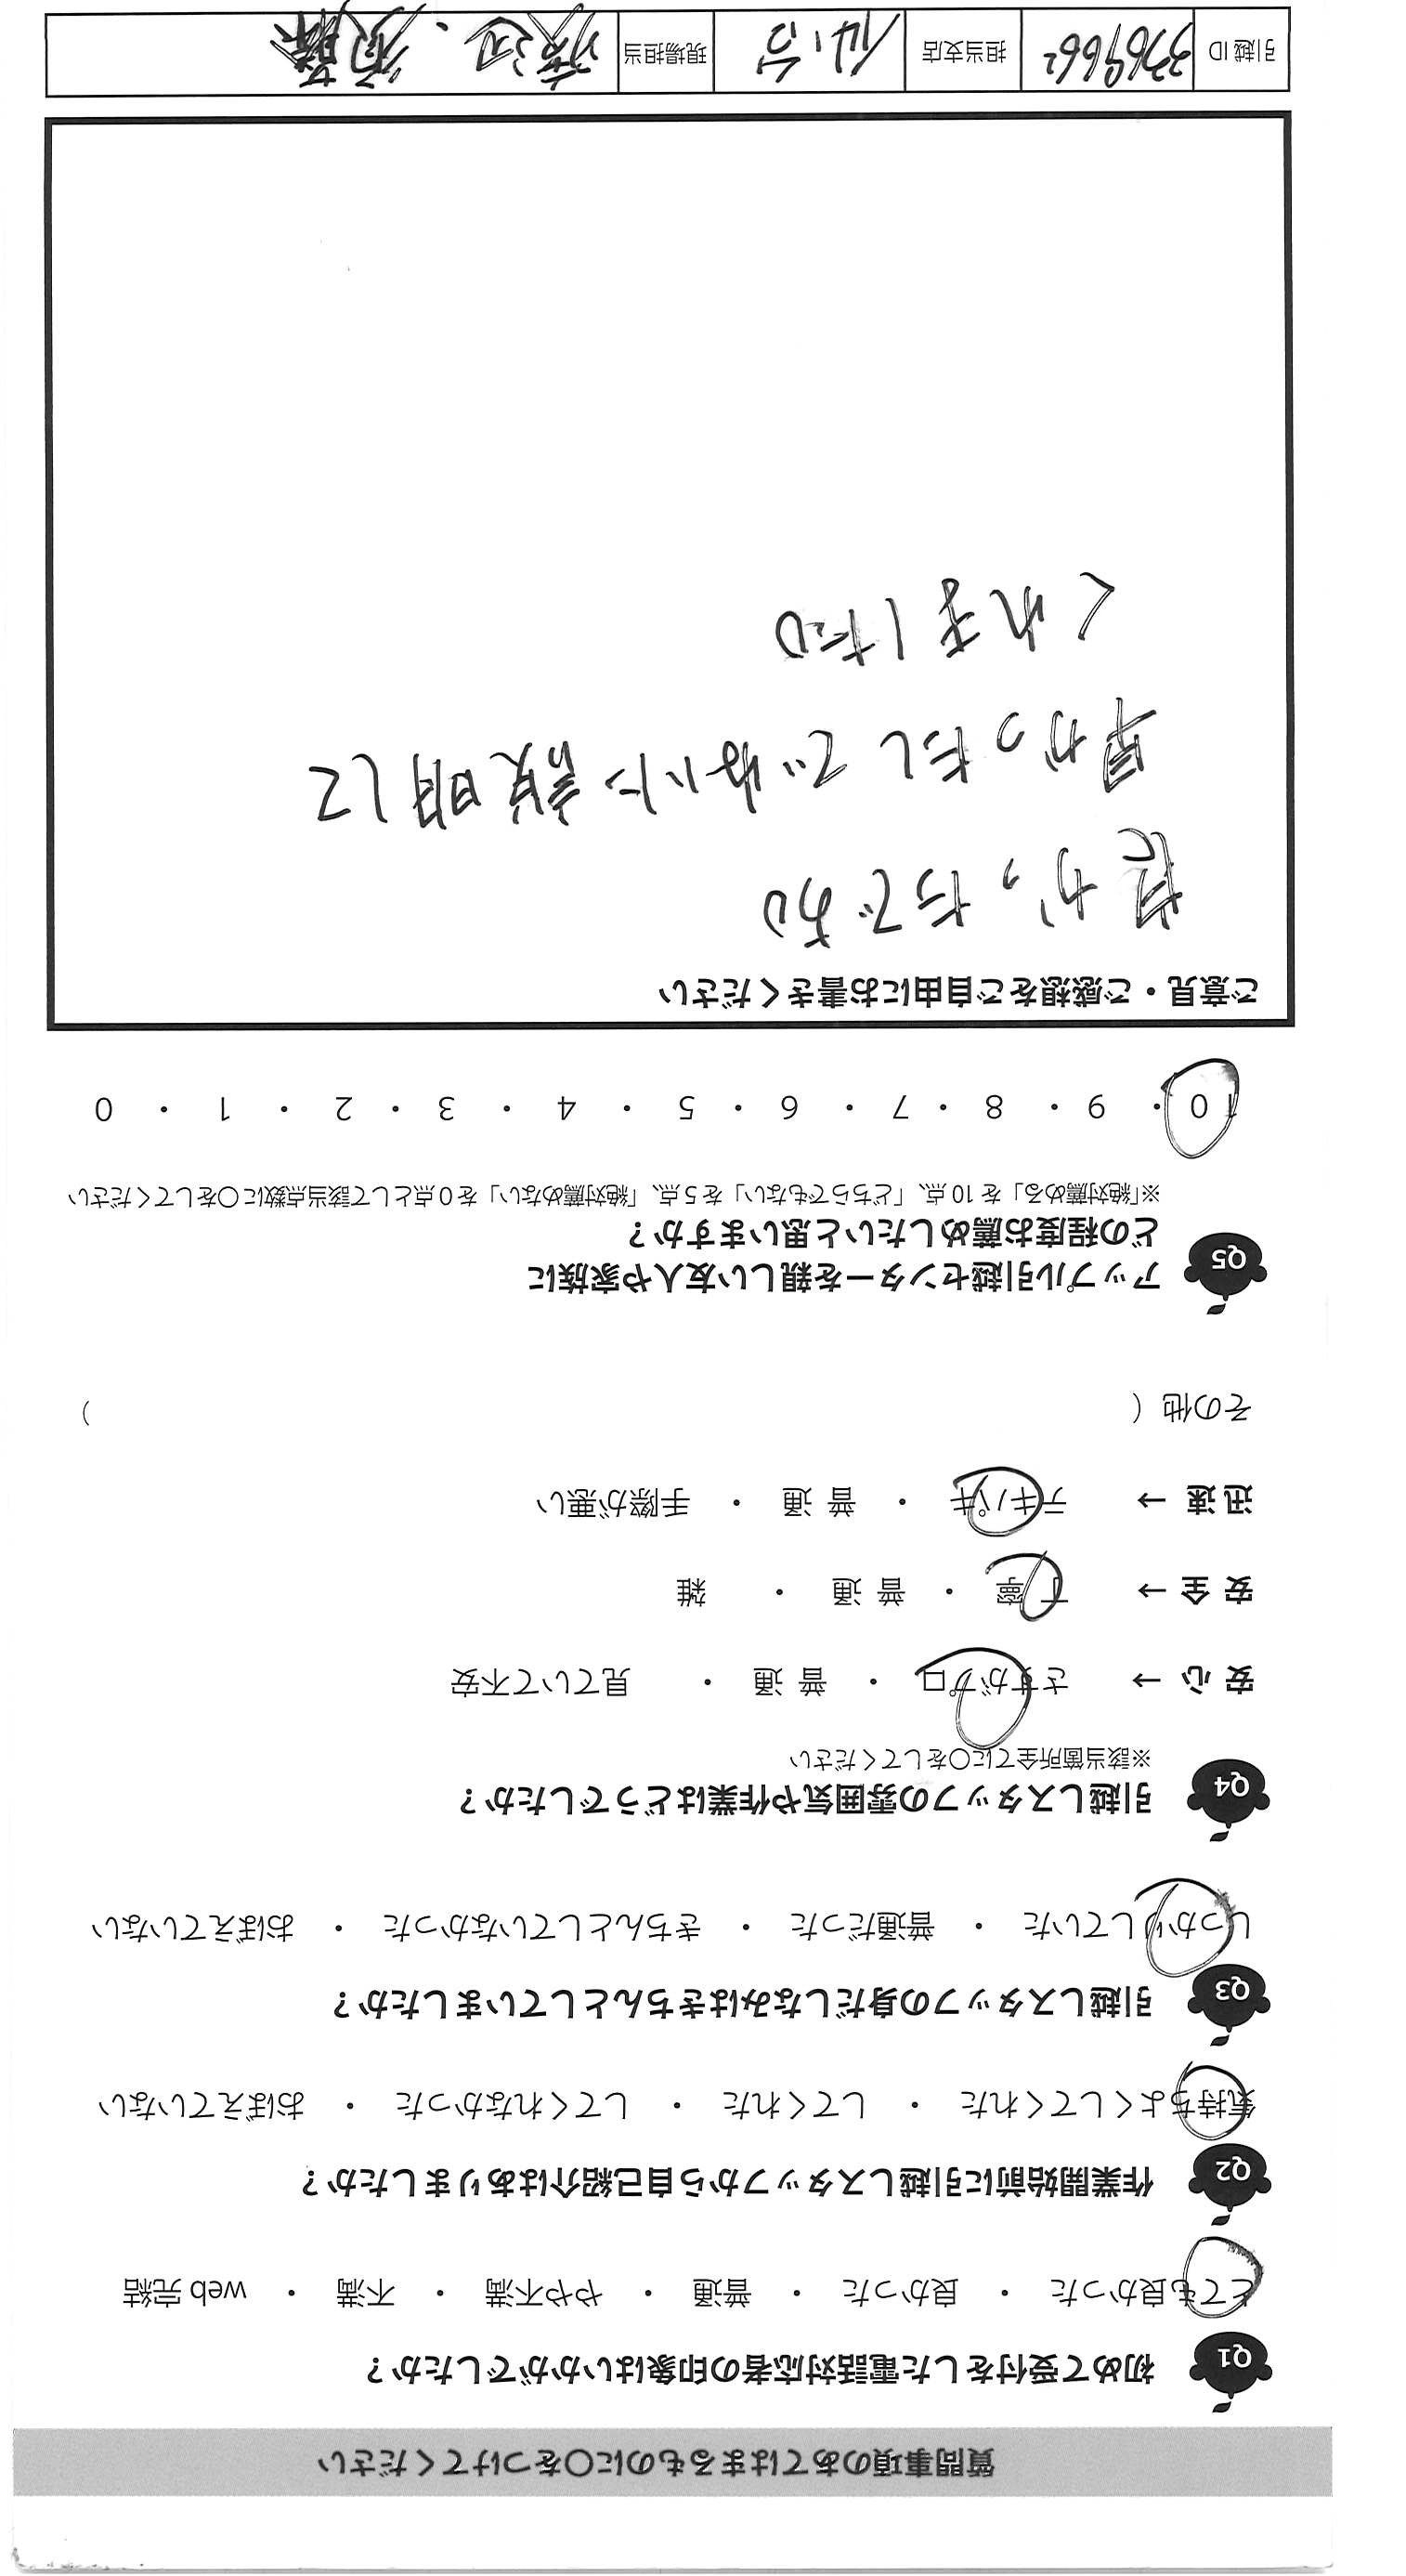 質問事項のあてはまるものに〇をつけてください
Q1 初めて受付をした電話対応者の印象はいかがでしたか？
とても良かった ・ 良かった ・ 普通 ・ やや不満 ・ 不満 ・ web 完結
Q2 作業開始前に引越しスタッフから自己紹介はありましたか？
気持ちよくしてくれた ・ してくれた ・ してくれなかった ・ おぼえていない
Q3 引越しスタッフの身だしなみはきちんとしていましたか？
しっかりしていた ・ 普通だった ・ きちんとしていなかった ・ おぼえていない
Q4 引越しスタッフの雰囲気や作業はどうでしたか？
※該当箇所全てに〇をしてください
安 心 → さすがプロ ・ 普 通 ・ 見ていて不安
安 全 → 丁 寧 ・ 普 通 ・ 雑
迅 速 → テキパキ ・ 普 通 ・ 手際が悪い
その他（ ）
Q5 アップル引越センターを親しい友人や家族に
どの程度お薦めしたいと思いますか？
※「絶対薦める」を 10 点、「どちらでもない」を 5 点、「絶対薦めない」を 0 点として該当点数に〇をしてください
10 ・ 9 ・ 8 ・ 7 ・ 6 ・ 5 ・ 4 ・ 3 ・ 2 ・ 1 ・ 0
ご意見・ご感想をご自由にお書きください
かったです
早かったしていねいに説明して
くれました
引越 ID 3769662 担当支店 仙台 現場担当 渡辺、須藤